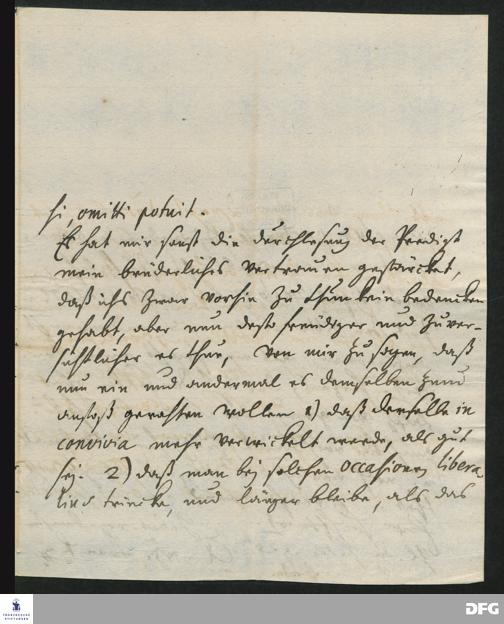 si, omitti potuit.
Es hat mir sonst die durchlesung der Predigt
mein brüderliches Vertrauen gestärcket,
daß ichs zwar vorhin zu thun kein bedencken
gehabt, aber nun desto freudiger und zuver-
sichtlicher es thue, von mir zu sagen, daß
nun ein und andermal es demselben zum
anstoß gerathen wollen 1) daß derselbe in
convivia mehr verwickelt werde, als gut
sey. 2) daß man bey solchen occasionen libera-
lius trincke, und länger bleibe, als das
FRANCKESCHE
STIFTUNGEN
DFG